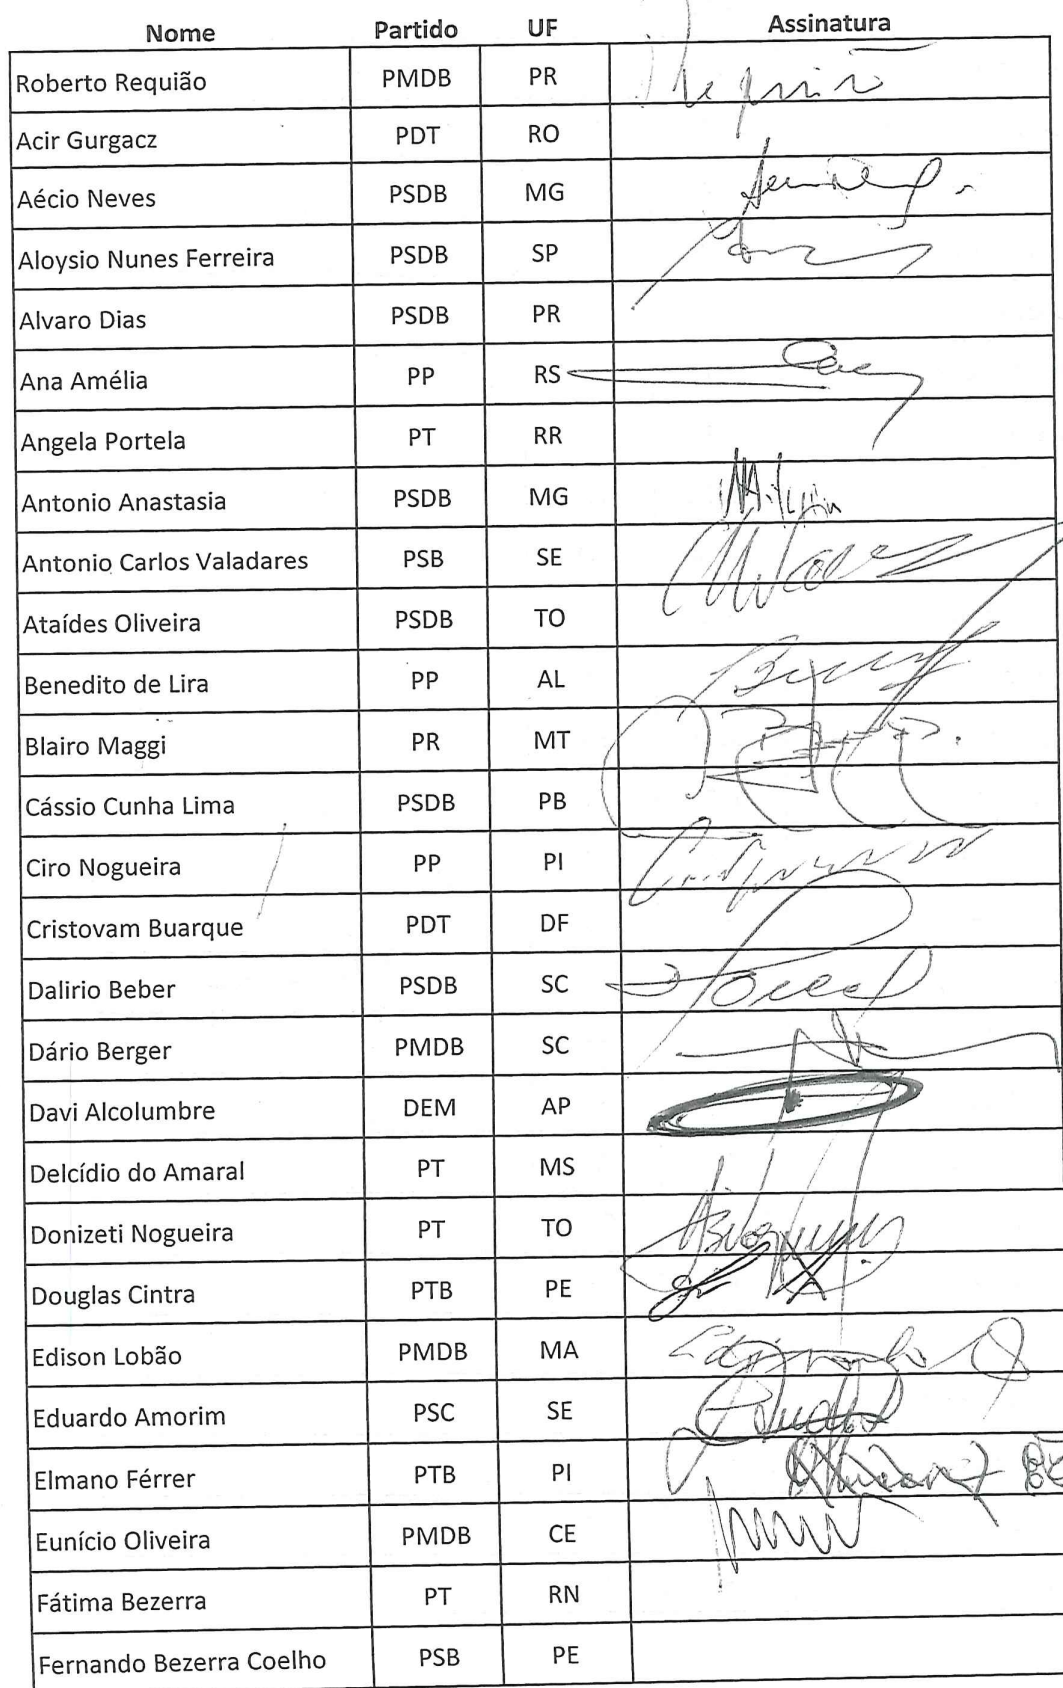 Nome Partido UF Assinatura
Roberto Requião PMDB PR Requião
Acir Gurgacz PDT RO
Aécio Neves PSDB MG
Aloysio Nunes Ferreira PSDB SP
Alvaro Dias PSDB PR
Ana Amélia PP RS
Angela Portela PT RR
Antonio Anastasia PSDB MG
Antonio Carlos Valadares PSB SE
Ataídes Oliveira PSDB TO
Benedito de Lira PP AL
Blairo Maggi PR MT
Cássio Cunha Lima PSDB PB
Ciro Nogueira PP PI
Cristovam Buarque PDT DF
Dalirio Beber PSDB SC
Dário Berger PMDB SC
Davi Alcolumbre DEM AP
Delcídio do Amaral PT MS
Donizeti Nogueira PT TO
Douglas Cintra PTB PE
Edison Lobão PMDB MA
Eduardo Amorim PSC SE
Elmano Férrer PTB PI
Eunício Oliveira PMDB CE
Fátima Bezerra PT RN
Fernando Bezerra Coelho PSB PE